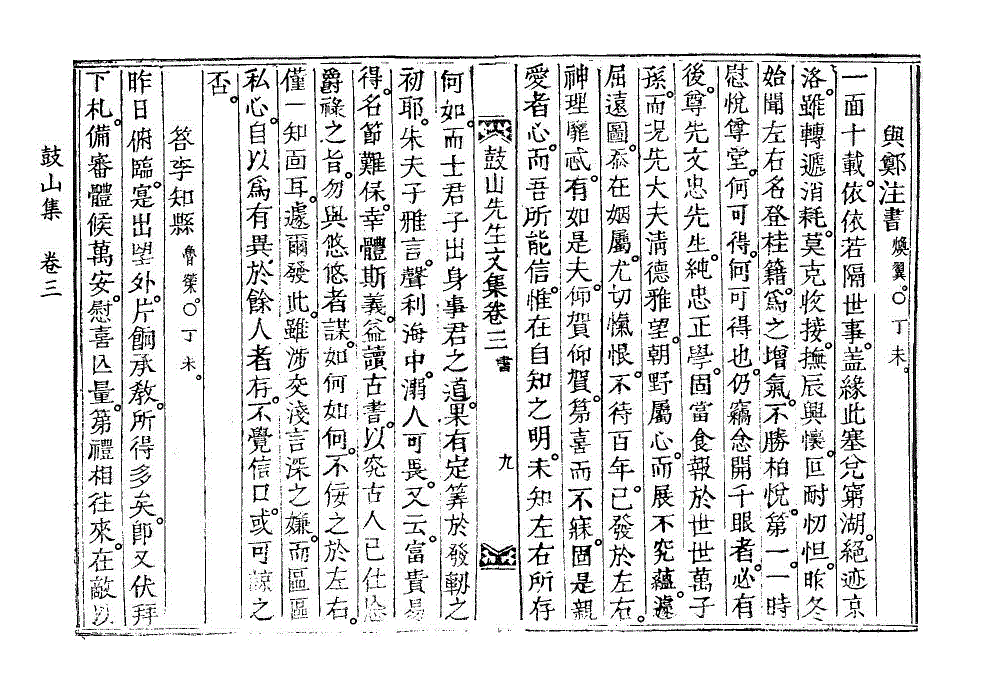 與鄭注書 煥翼。○丁未。
一面十載。依依若隔世事。盖緣此塞兌窮湖。絕迹京
洛。雖轉遞消耗。莫克收接。撫辰興懷。叵耐忉怛。昨冬
始聞左右名登桂籍。爲之增氣。不勝柏悅。第一一時
慰悅尊堂。何可得。何可得也。仍竊念開千眼者。必有
後。尊先文忠先生。純忠正學。固當食報於世世萬子
孫。而况先大夫淸德雅望。朝野屬心。而展不究蘊。遽
屈遠圖。忝在姻屬。尤切愾恨。不待百年。已發於左右。
神理礭忒。有如是夫。仰賀仰賀。第喜而不寐。固是親
愛者心。而吾所能信。惟在自知之明。未知左右所存
鼓山先生文集卷三 書 九
何如。而士君子出身事君之道。果有定筭於發軔之
初耶。朱夫子雅言。聲利海中。溺人可畏。又云。富貴易
得。名節難保。幸體斯義。益讀古書。以究古人已仕怯
爵祿之旨。勿與悠悠者謀。如何如何。不佞之於左右。
僅一知面耳。遽爾發此。雖涉交淺言深之嫌。而區區
私心。自以爲有異於餘人者存。不覺信口。或可諒之
否。
答李知縣 魯榮○丁未。
昨日俯臨。寔出望外。片餉承敎。所得多矣。卽又伏拜
下札。備審體候萬安。慰喜亾量。第禮相往來。在敵以
鼓山集 卷三